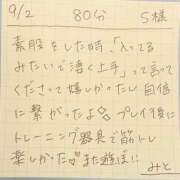 9/2 80分 S様
素股をした時「入ってる
みたいで凄く上手」って言って
くださって嬉しかったし自信
に繋がったよ♡プレイ後に
トレーニング器具で筋トレ
楽しかった♡また遊ぼに
みと